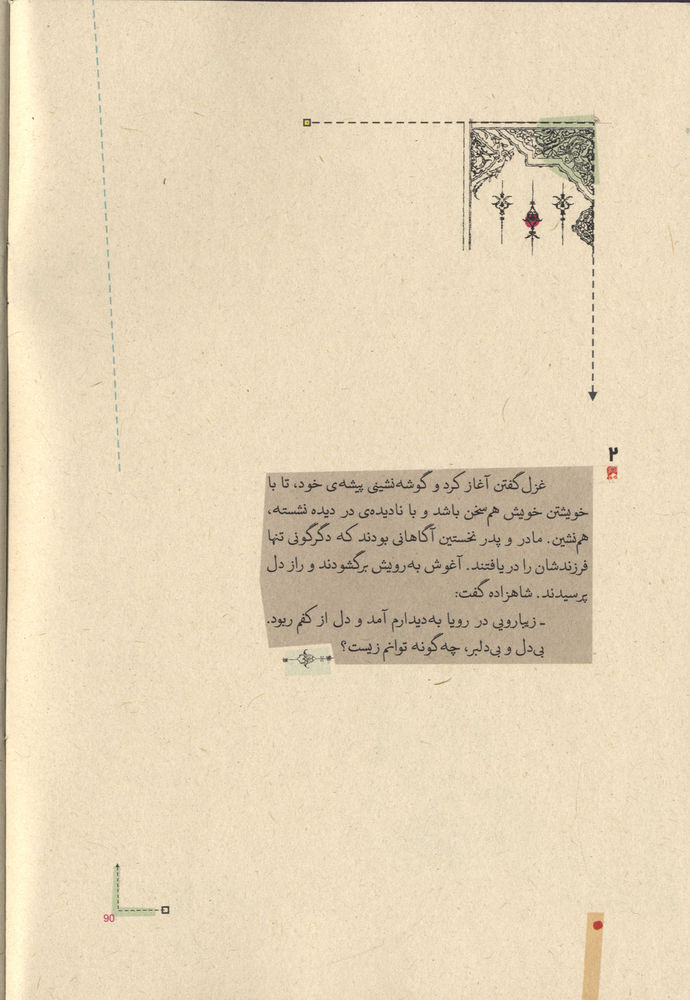 ۲
غزل گفتن آغاز کرد و گوشه‌نشینی پیشه‌ی خود، تا با
خویشتن خویش هم‌سخن باشد و با نادیده‌ی در دیده نشسته،
هم‌نشین. مادر و پدر نخستین آگاهانی بودند که دگرگونی تنها
فرزندشان را دریافتند. آغوش به‌رویش برگشودند و راز دل
پرسیدند. شاهزاده گفت:
ـ زیبارویی در رویا به‌دیدارم آمد و دل از کفم ربود.
بی‌دل و بی‌دلبر، چه‌گونه توانم زیست؟
90